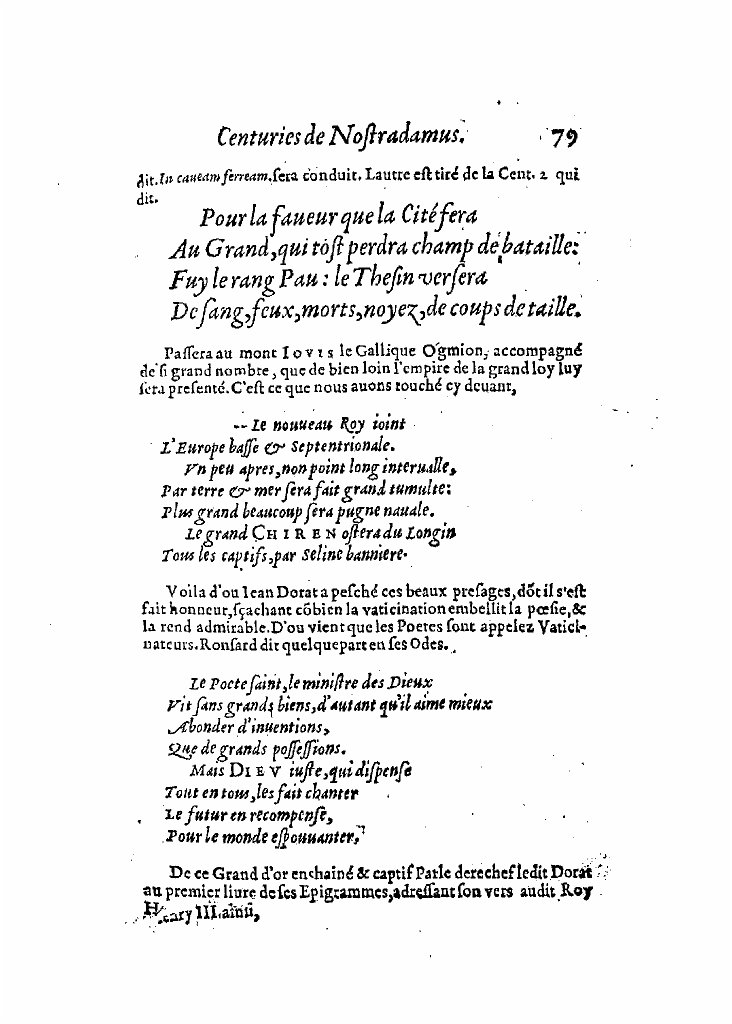 Centuries de Noſtradamus. 79
dit. In caueam ferream. ſera conduit. Lautre eſt tiré de la Cent. 2 qui
dit.
Pour la faueur que la Cité fera
Au Grand, qui toſt perdra champ de bataille:
Fuy le rang Pau: le Theſin verſera
De ſang, feux, morts, noyez, de coups de taille.
Paſſera au mont IOVIS le Gallique Ogmion, accompagné
de ſi grand nombre, que de bien loin l'empire de la grand loy luy
ſera preſenté. C'eſt ce que nous auons touché cy deuant,
-- Le nouueau Roy ioint
L'Europe baſſe & Septentrionale.
Vn peu apres, non point long interualle,
Par terre & mer ſera fait grand tumulte:
Plus grand beaucoup ſera pugne nauale.
Le grand CHIREN oſtera du Longin
Tous les captifs, par Seline banniere.
Voila d'ou Iean Dorat a peſché ces beaux preſages, dõt il s'eſt
fait honneur, ſçachant cõbien la vaticination embellit la pœſie, &
la rend admirable. D'ou vient que les Poetes ſont appelez Vatici-
nateurs. Ronſard dit quelque part en ſes Odes.
Le Poete ſaint, le miniſtre des Dieux
Vit ſans grands biens, d'autant qu'il aime mieux
Abonder d'inuentions,
Que de grands poſſeſſions.
Mais DIEV iuſte, qui diſpenſe
Tout en tous, les fait chanter
Le futur en recompenſe,
Pour le monde eſpouuanter,
De ce Grand d'or enchainé & captif Parle derechef ledit Dorat
au premier liure de ſes Epigrammes, adreſſant ſon vers audit Roy
Henry III. ainſi,